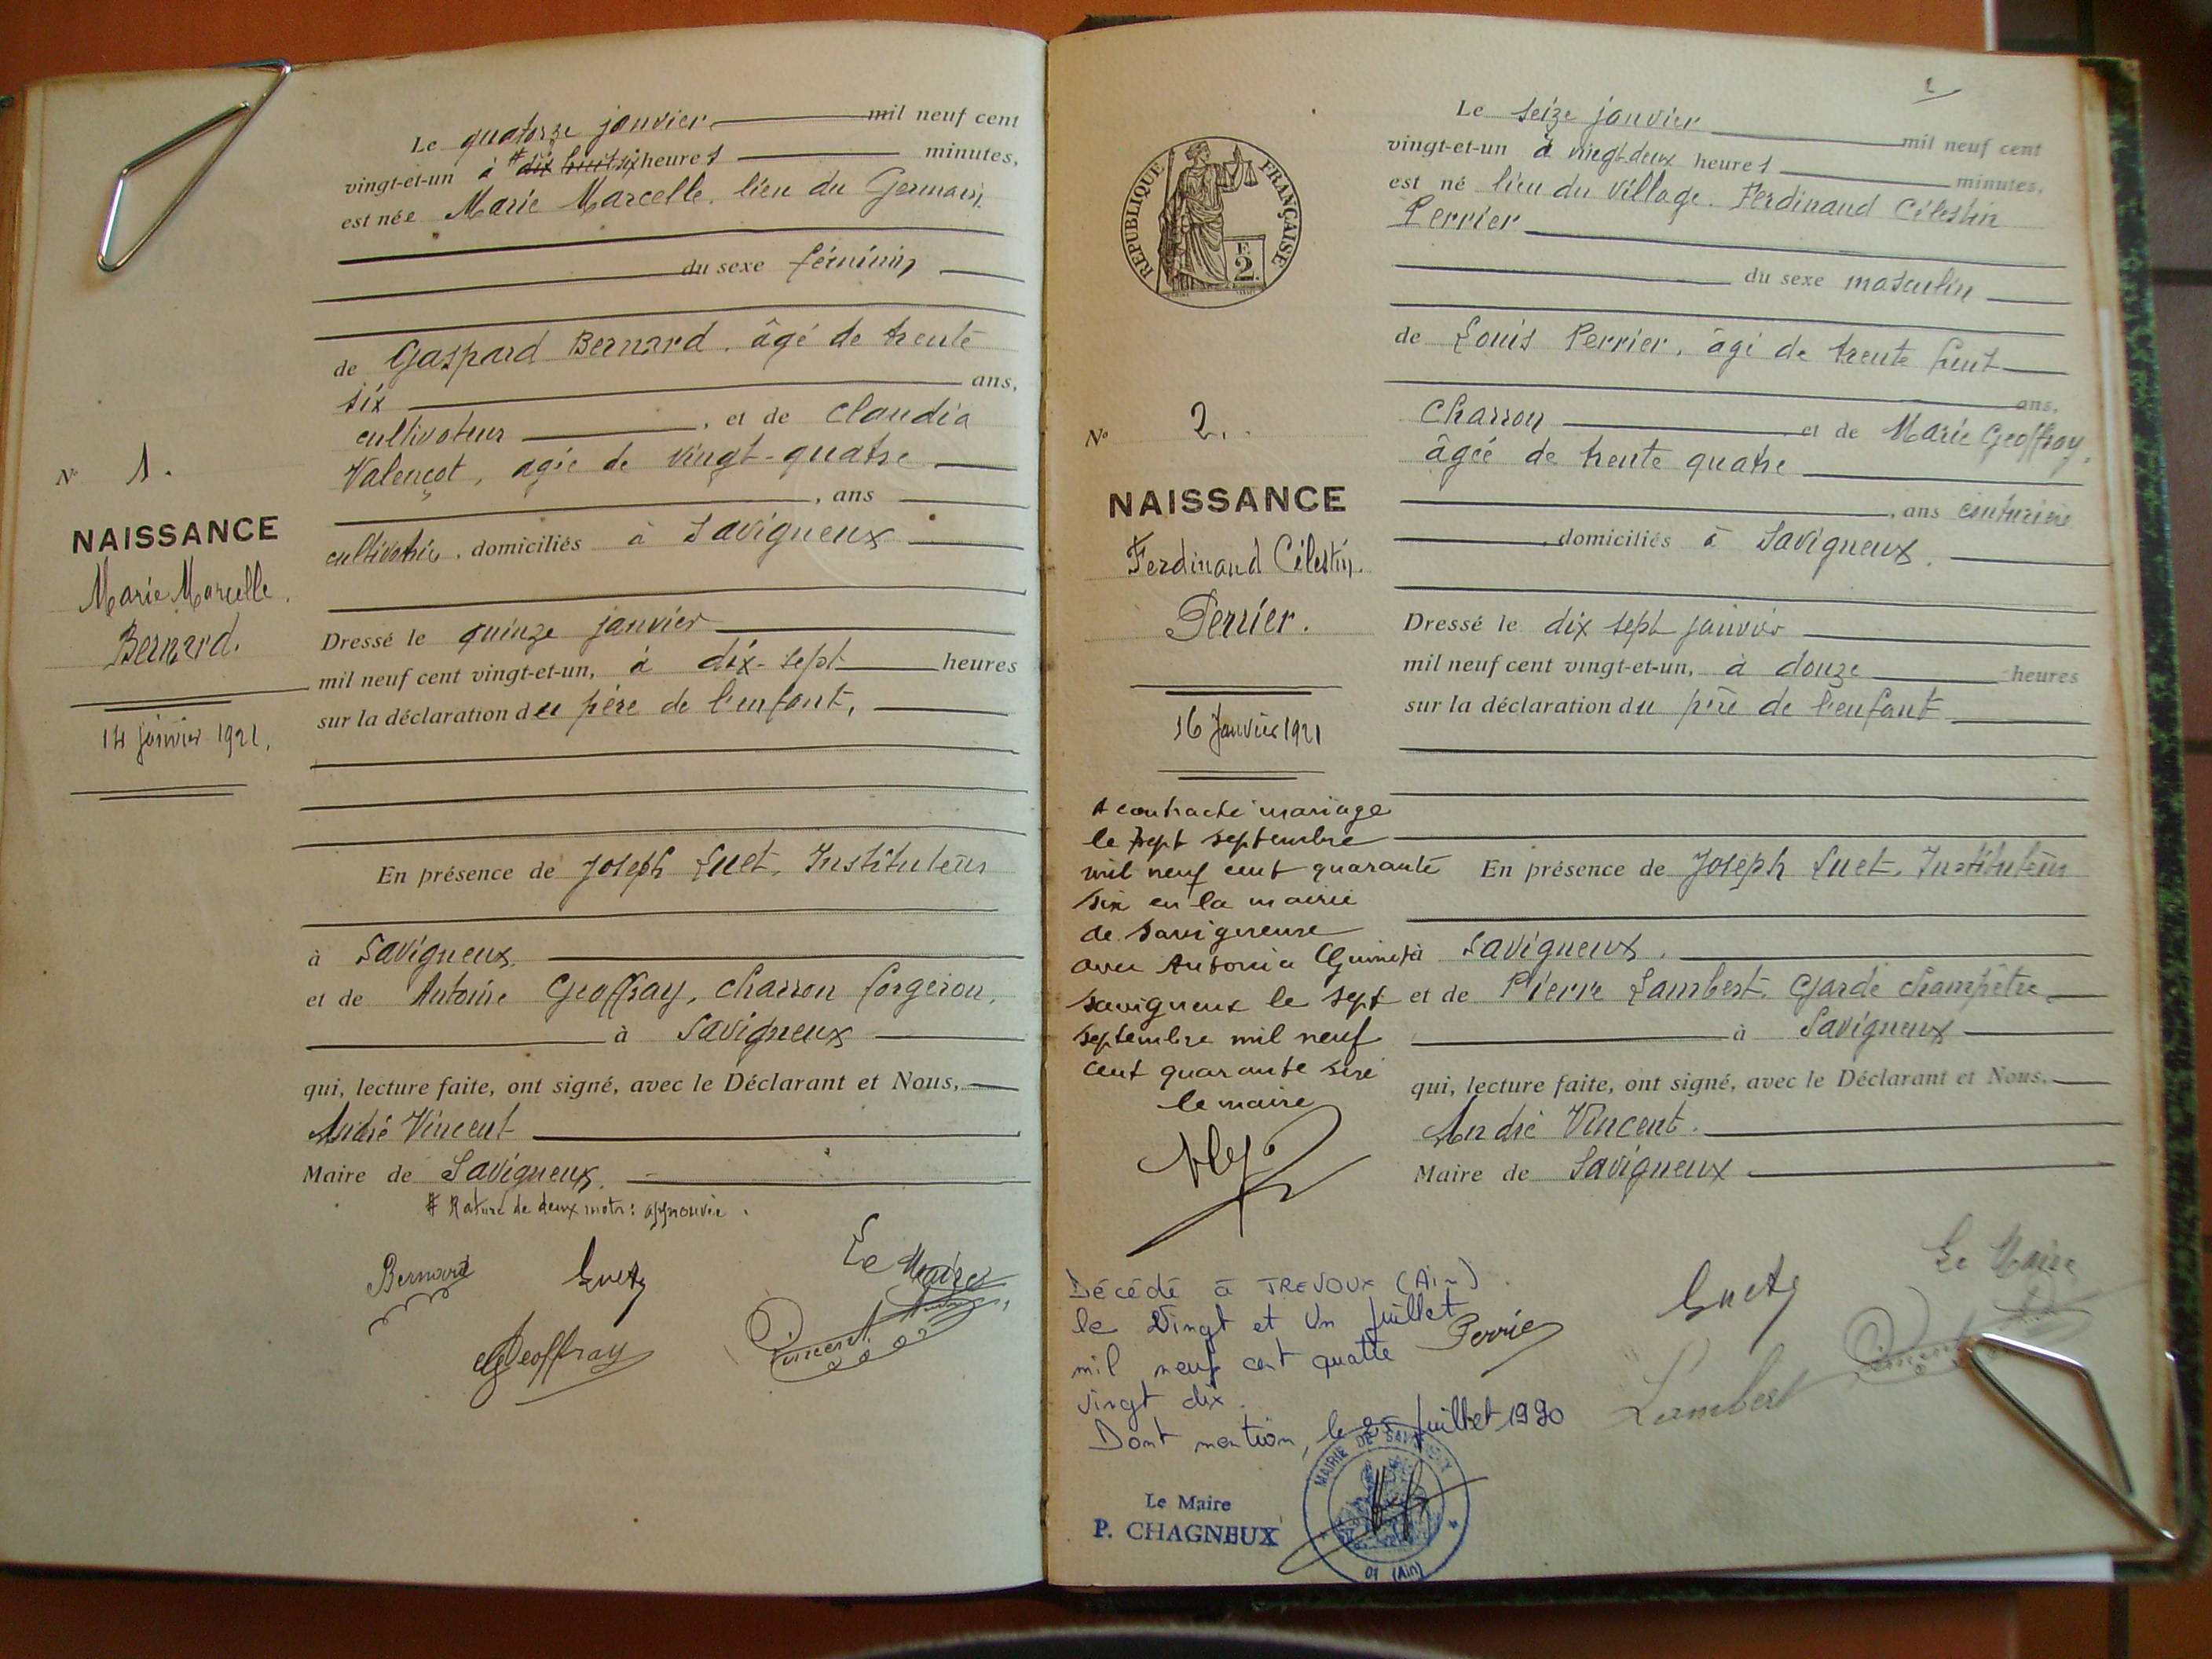 Le quatorze janvier mil neuf cent
vingt-et-un à # dix huit six heures minutes,
est née Marie Marcelle, lieu du Germain
du sexe féminin
de Gaspard Bernard, âgé de trente
six ans,
cultivateur, et de Claudia
Valençot, agée de vingt-quatre
, ans
cultivatrice, domiciliés à Savigneux
N° 1.
NAISSANCE
Marie Marcelle
Bernard.
14 janvier 1921.
Dressé le quinze janvier
mil neuf cent vingt-et-un, à dix-sept heures
sur la déclaration du père de l'enfant,
En présence de Joseph Guet, Instituteur
à Savigneux
et de Antoine Geoffray, charron forgeron,
à Savigneux
qui, lecture faite, ont signé, avec le Déclarant et Nous,
André Vincent
Maire de Savigneux.
# Rature de deux mots: approuvée.
Bernard Guet Le Maire
Geoffray Vincent
2
Le seize janvier mil neuf cent
vingt-et-un à vingt-deux heures minutes,
est né lieu du Village. Ferdinand Célestin
Perrier
du sexe masculin
de Louis Perrier, âgé de trente huit
ans,
charron et de Marie Geoffray,
âgée de trente quatre
, ans couturière
, domiciliés à Savigneux.
REPUBLIQUE FRANÇAISE
2
N° 2.
NAISSANCE
Ferdinand Célestin
Perrier.
16 Janvier 1921
Dressé le dix sept janvier
mil neuf cent vingt-et-un, à douze heures
sur la déclaration du père de l'enfant
En présence de Joseph Guet, Instituteur
à Savigneux.
et de Pierre Lambert, Garde champêtre
à Savigneux
qui, lecture faite, ont signé, avec le Déclarant et Nous,
André Vincent.
Maire de Savigneux
A contracté mariage
le sept septembre
mil neuf cent quarante
six en la mairie
de Savigneux
avec Antonia
Savigneux le sept
septembre mil neuf
cent quarante six
le maire
Perrier Guet Le Maire
Lambert Vincent
Décédé à TREVOUX (Ain)
le Vingt et Un Juillet
mil neuf cent quatre
vingt dix.
Dont mention, le 25 Juillet 1990
Le Maire
P. CHAGNEUX
MAIRIE DE SAVIGNEUX
01 (Ain)